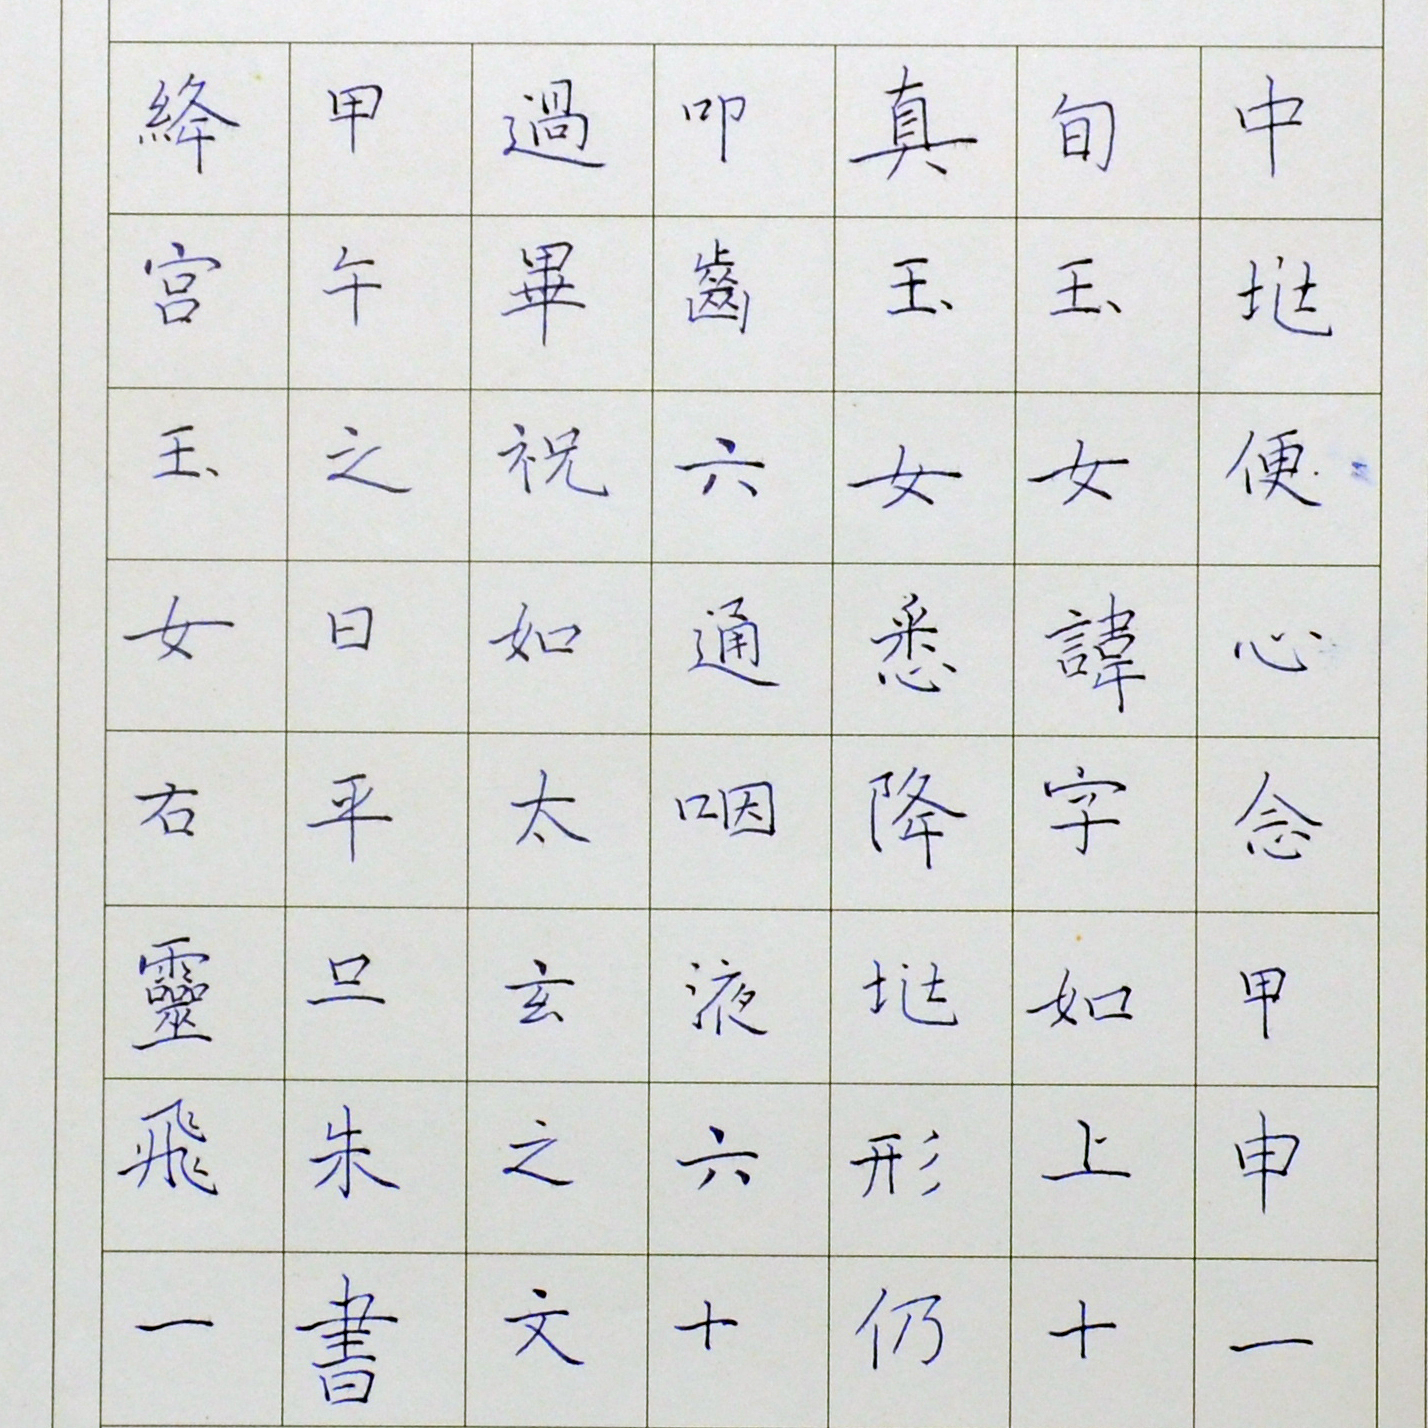 中兆便心念甲申一
旬玉女諱字如上十
真玉女悉降兆形仍
叩齒六通咽液六十
過畢祝如太玄之文
甲午之日平旦朱書
絳宮玉女右靈飛一